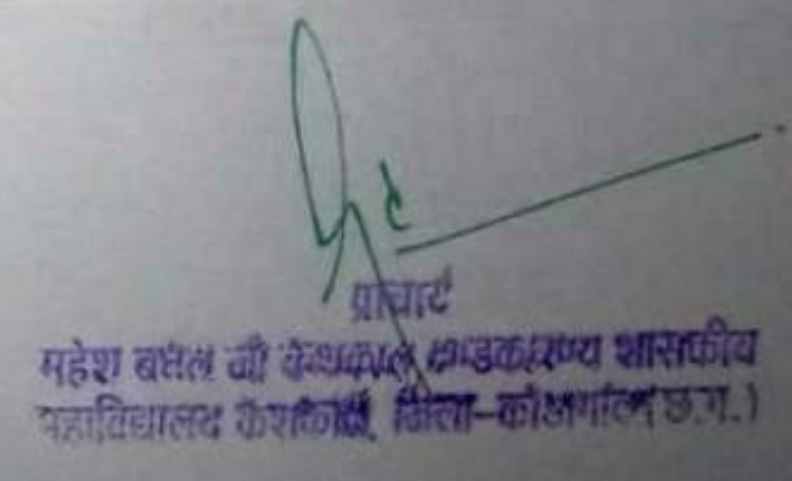 प्राचार्य
महेश बघेल जी केशकाल दण्डकारण्य शासकीय
महाविद्यालय जिला-कोण्डागांव(छ.ग.)